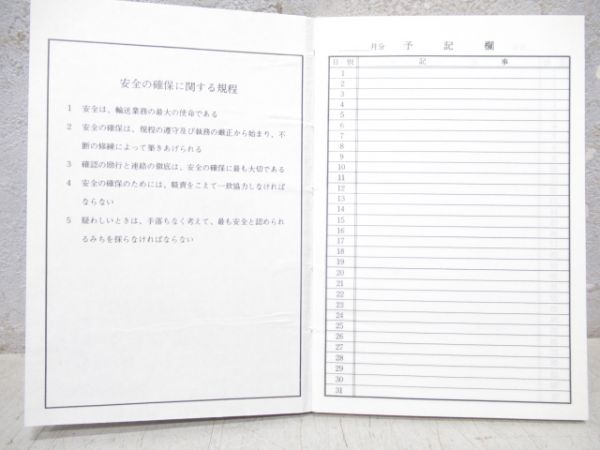 安全の確保に関する規程
1 安全は、輸送業務の最大の使命である
2 安全の確保は、規程の遵守及び執務の厳正から始まり、不
断の修練によって築きあげられる
3 確認の励行と連絡の徹底は、安全の確保に最も大切である
4 安全の確保のためには、職責をこえて一致協力しなければ
ならない
5 疑わしいときは、手落ちなく考えて、最も安全と認められ
るみちを採らなければならない
月分 予記欄
日 別 記 事
1
2
3
4
5
6
7
8
9
10
11
12
13
14
15
16
17
18
19
20
21
22
23
24
25
26
27
28
29
30
31